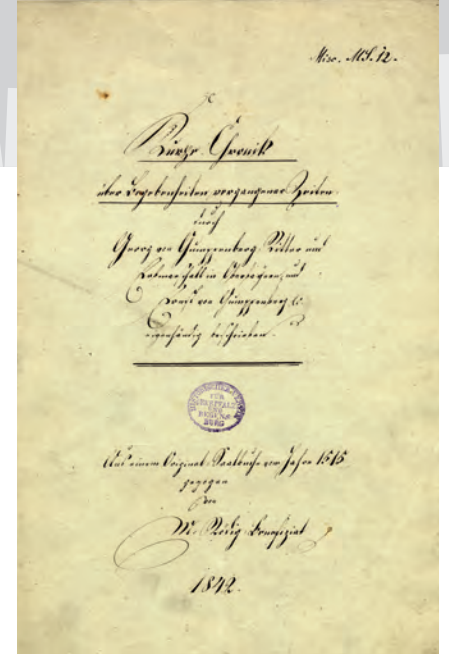 Misc. MS. 12.
Kurze Chronik
über Begebenheiten vergangener Zeiten
durch
Georg von Gumppenberg Ritter und
Erbmarschall in Oberbayern, und
von Gumppenberg
eigenhändig beschrieben.
FÜR
OBERPFALZ
UND
REGENS-
BURG
Aus einem Original-Saalbuche vom Jahre 1515
gezogen
von
M. Benefiziat
1842.